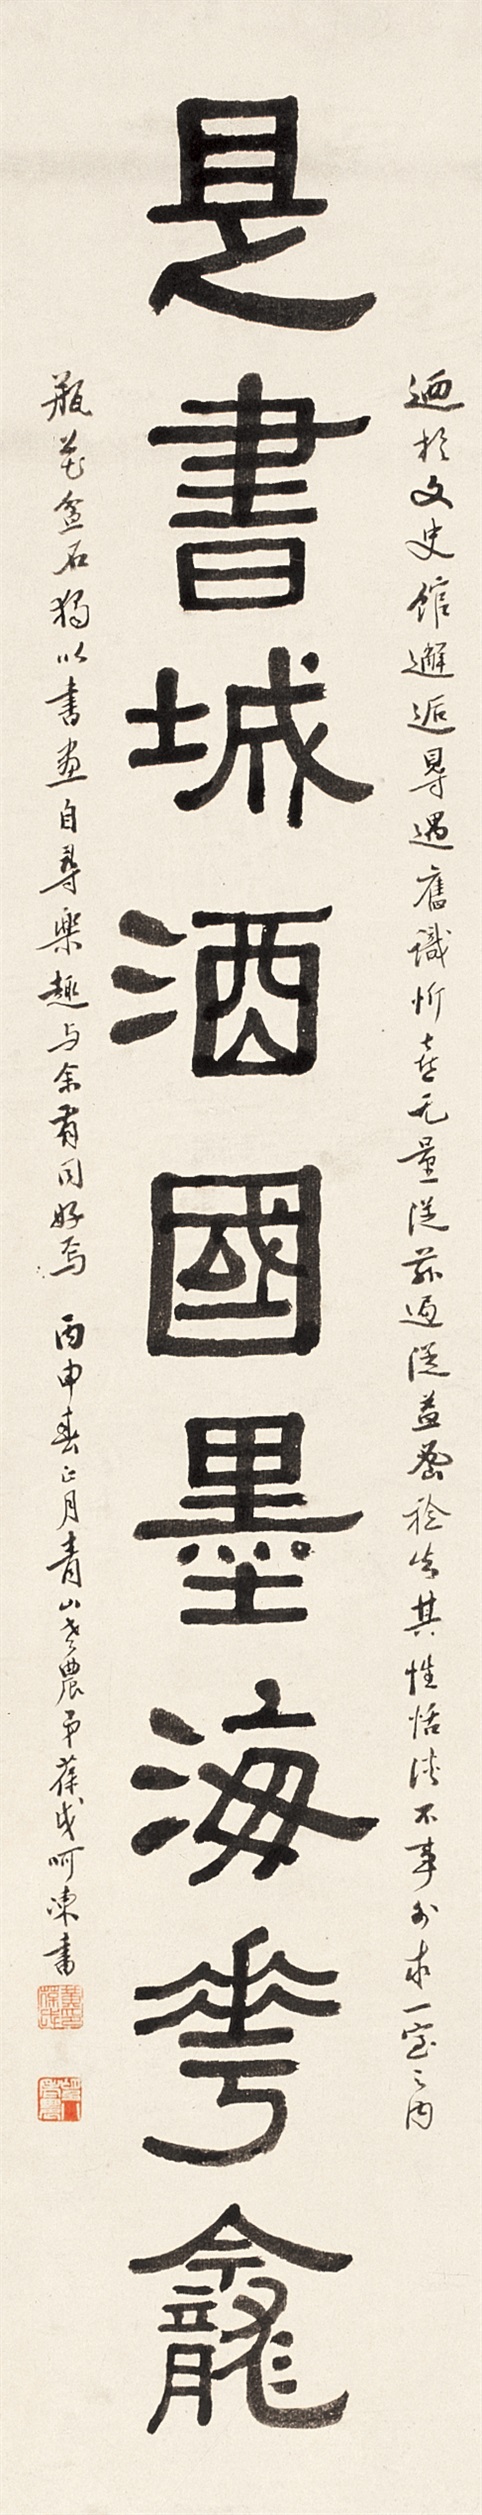 迺於文史館邂逅㝵遇舊識忻喜无量從茲過從益密稔悉其性恬淡不事外求一室之内
是書城酒國墨海華龕
瓶花盆石獨以書畫自㝵樂趣与余有同好焉 丙申春正月青山老農弟葆戉呵凍書